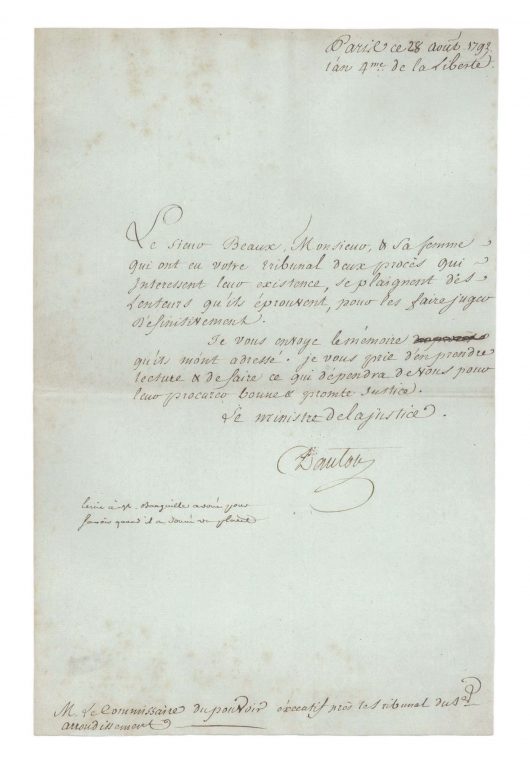 Paris ce 28 août 1792.
l'an 4me de la Liberté.
Le sieur Beaux, Monsieur, & sa femme
qui ont eu votre tribunal deux procès qui
Interessent leur existence, se plaignent des
Lenteurs qu'ils éprouvent, pour les faire juger
Définitivement.
Je vous envoye le mémoire
qu'ils m'ont adressé. je vous prie d'en prendre
lecture & de faire ce qui dépendra de Vous pour
leur procurer bonne & promte Justice.
Le ministre de la justice.
Danton
à M.
quand il a donné ce placet
M. Le Commissaire du pouvoir éxécutif près le tribunal du 1er
arrondissement